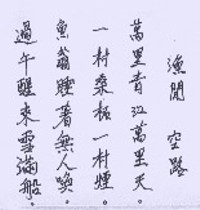 漁閒 空路
萬里青江萬里天
一村桑柘一村煙。
魚翁睡著無人喚。
過午醒來雪滿船。